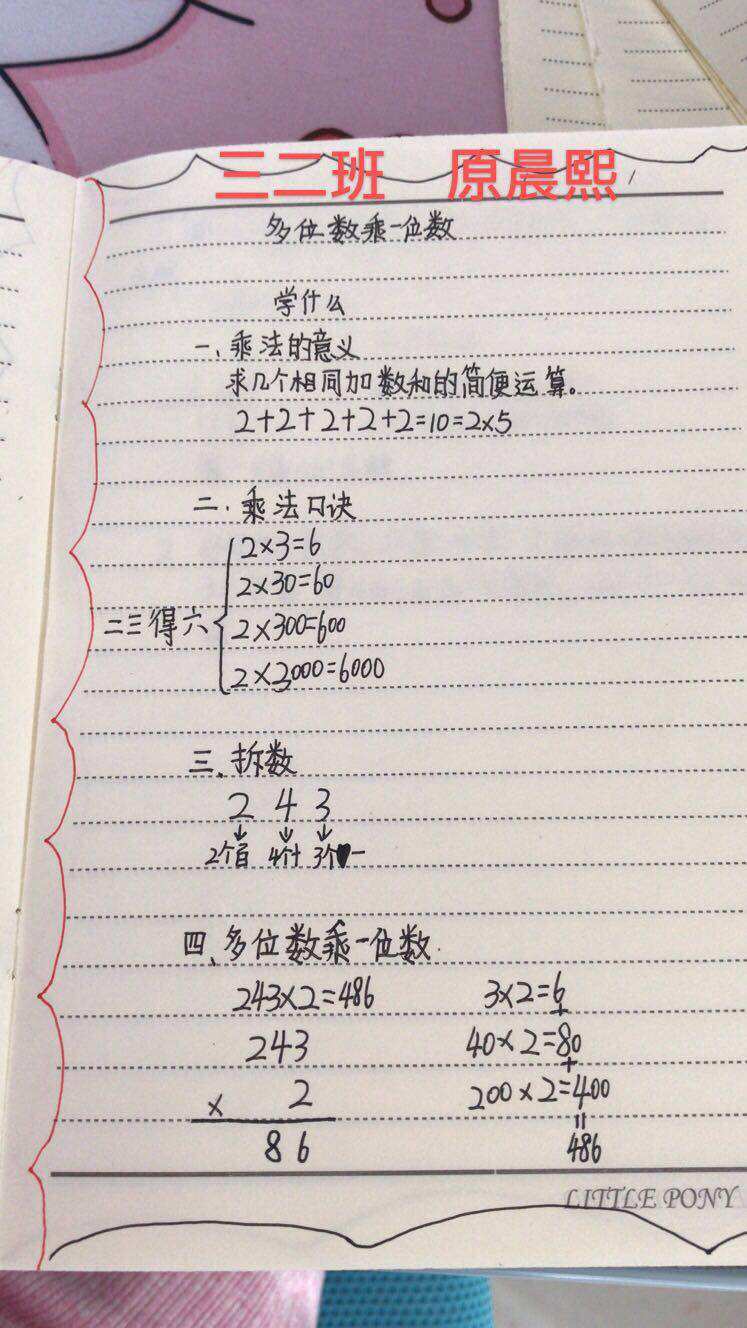 三二班 原晨熙
多位数乘一位数
学什么
一、乘法的意义
求几个相同加数和的简便运算。
2+2+2+2+2=10=2×5
二、乘法口诀
二三得六
2×3=6
2×30=60
2×300=600
2×3000=6000
三、拆数
2 4 3
↓ ↓ ↓
2个百 4个十 3个一
四、多位数乘一位数.
243×2=486
243
× 2
86
3×2=6
+
40×2=80
+
200×2=400
=
486
LITTLE PONY